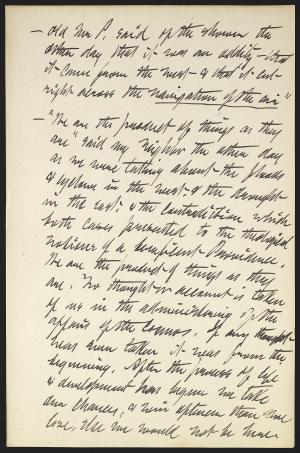 - old Mr P. said of the shower the
other day that it was an oddity - that
it came from the west & that it cut
right across the navigation of the air"
- "We are the product of things as they
are" said my neighbor the other day
as we were talking about the floods
& cyclone in the west & the drought
in the east: & the contradiction which
both cases presented to the theological
notions of a beneficent Providence.
We are the product of things as they
are. No thought or account is taken
of us in the administering of the
affairs of the Cosmos. If any thought
was ever taken it was from the
beginning. After the process of life
& development has begun we take
our chances, & win oftener than
lose, else we would not be here.